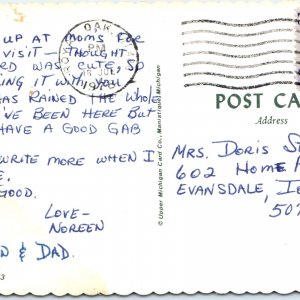 UP AT MOMS FOR
VISIT – THOUGHT
RD WAS CUTE, SO
ING IT WITH YOU
AS RAINED THE WHOLE
'VE BEEN HERE BUT
HAVE A GOOD GAB
WRITE MORE WHEN I
E.
GOOD.
LOVE–
NOREEN
N & DAD.
3
OAK
PM
© Upper Michigan Card Co., Manistique Michigan
POST CAR
Address
MRS. DORIS ST
602 HOME
EVANSDALE, I
507